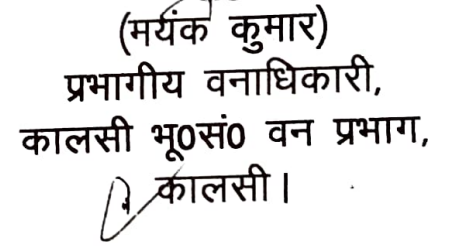 (मयंक कुमार)
प्रभागीय वनाधिकारी,
कालसी भू0सं0 वन प्रभाग,
कालसी।